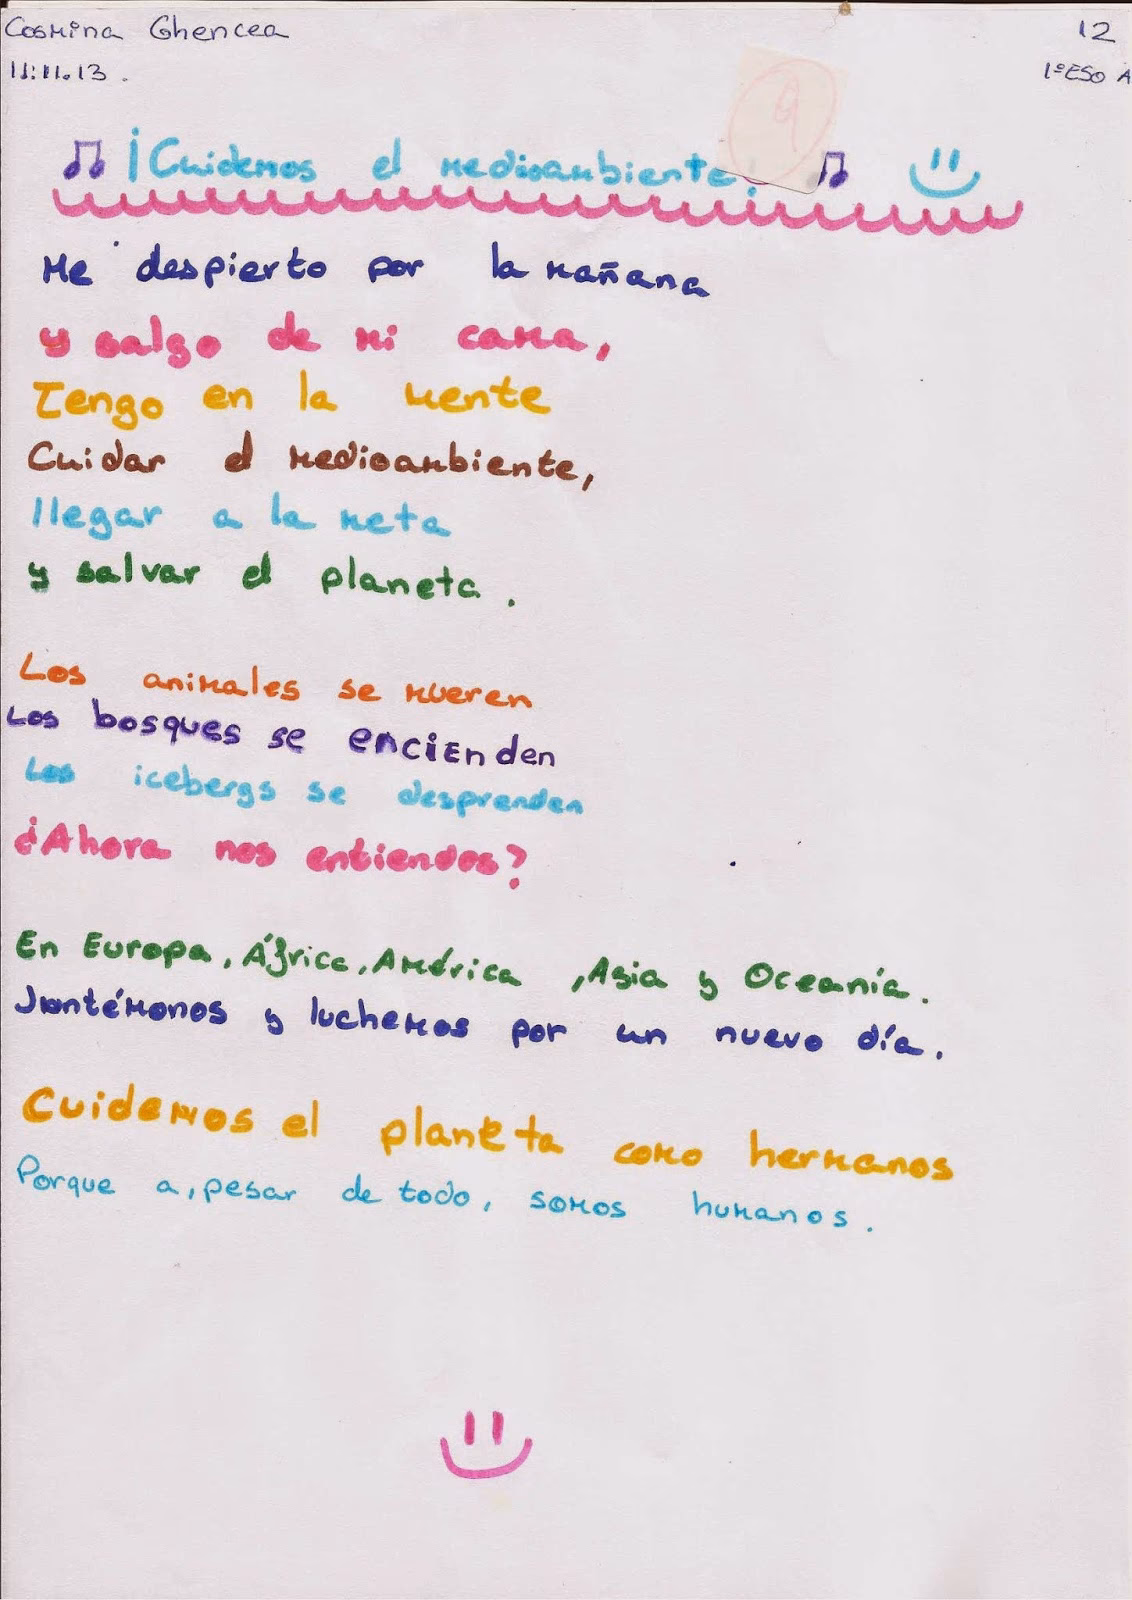 Cosmina Ghencea 12
11.11.13. 1º ESO A
9
¡Cuidemos el medioambiente!
Me despierto por la mañana
y salgo de mi cama,
Tengo en la mente
Cuidar el medioambiente,
llegar a la meta
y salvar el planeta.
Los animales se mueren
Los bosques se encienden
Los icebergs se desprenden
¿Ahora nos entiendes?
En Europa, África, América, Asia y Oceanía.
Juntémonos y luchemos por un nuevo día.
Cuidemos el planeta como hermanos
Porque a, pesar de todo, somos humanos.